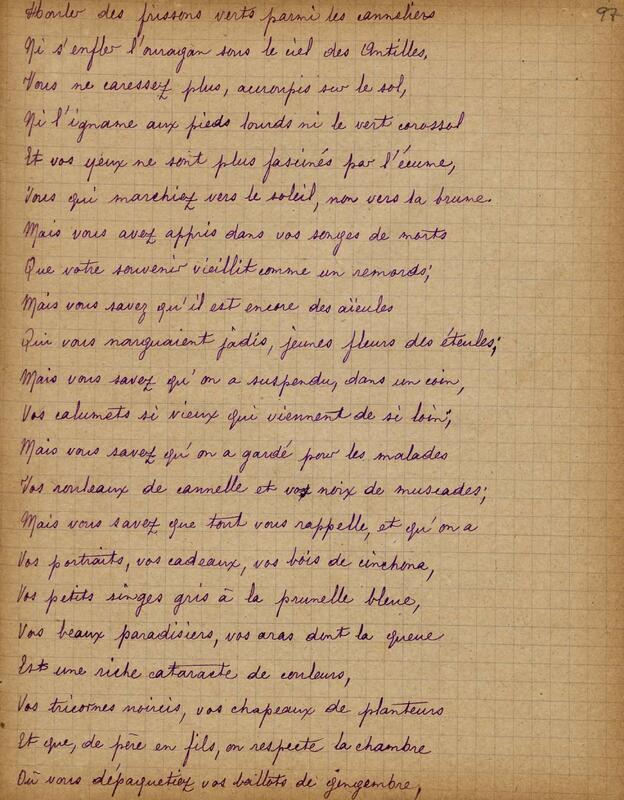 97
Houler des frissons verts parmi les canneliers
Ni s'enfler l'ouragan sous le ciel des Antilles,
Vous ne caressez plus, accroupis sur le sol,
Ni l'igname aux pieds lourds ni le vert corossol
Et vos yeux ne sont plus fascinés par l'écume,
Vous qui marchiez vers le soleil, non vers la brume.
Mais vous avez appris dans vos songes de morts
Que votre souvenir vieillit comme un remords;
Mais vous savez qu'il est encore des aïeules
Qui vous narguaient jadis, jeunes fleurs des éteules;
Mais vous savez qu'on a suspendu, dans un coin,
Vos calumets si vieux qui viennent de si loin;
Mais vous savez qu'on a gardé pour les malades
Vos rouleaux de cannelle et vos noix de muscades;
Mais vous savez que tout vous rappelle, et qu'on a
Vos portraits, vos cadeaux, vos bois de cinchona,
Vos petits singes gris à la prunelle bleue,
Vos beaux paradisiers, vos aras dont la queue
Est une riche cataracte de couleurs,
Vos tricornes noircis, vos chapeaux de planteurs
Et que, de père en fils, on respecte la chambre
Où vous dépaquetiez vos ballots de gingembre,